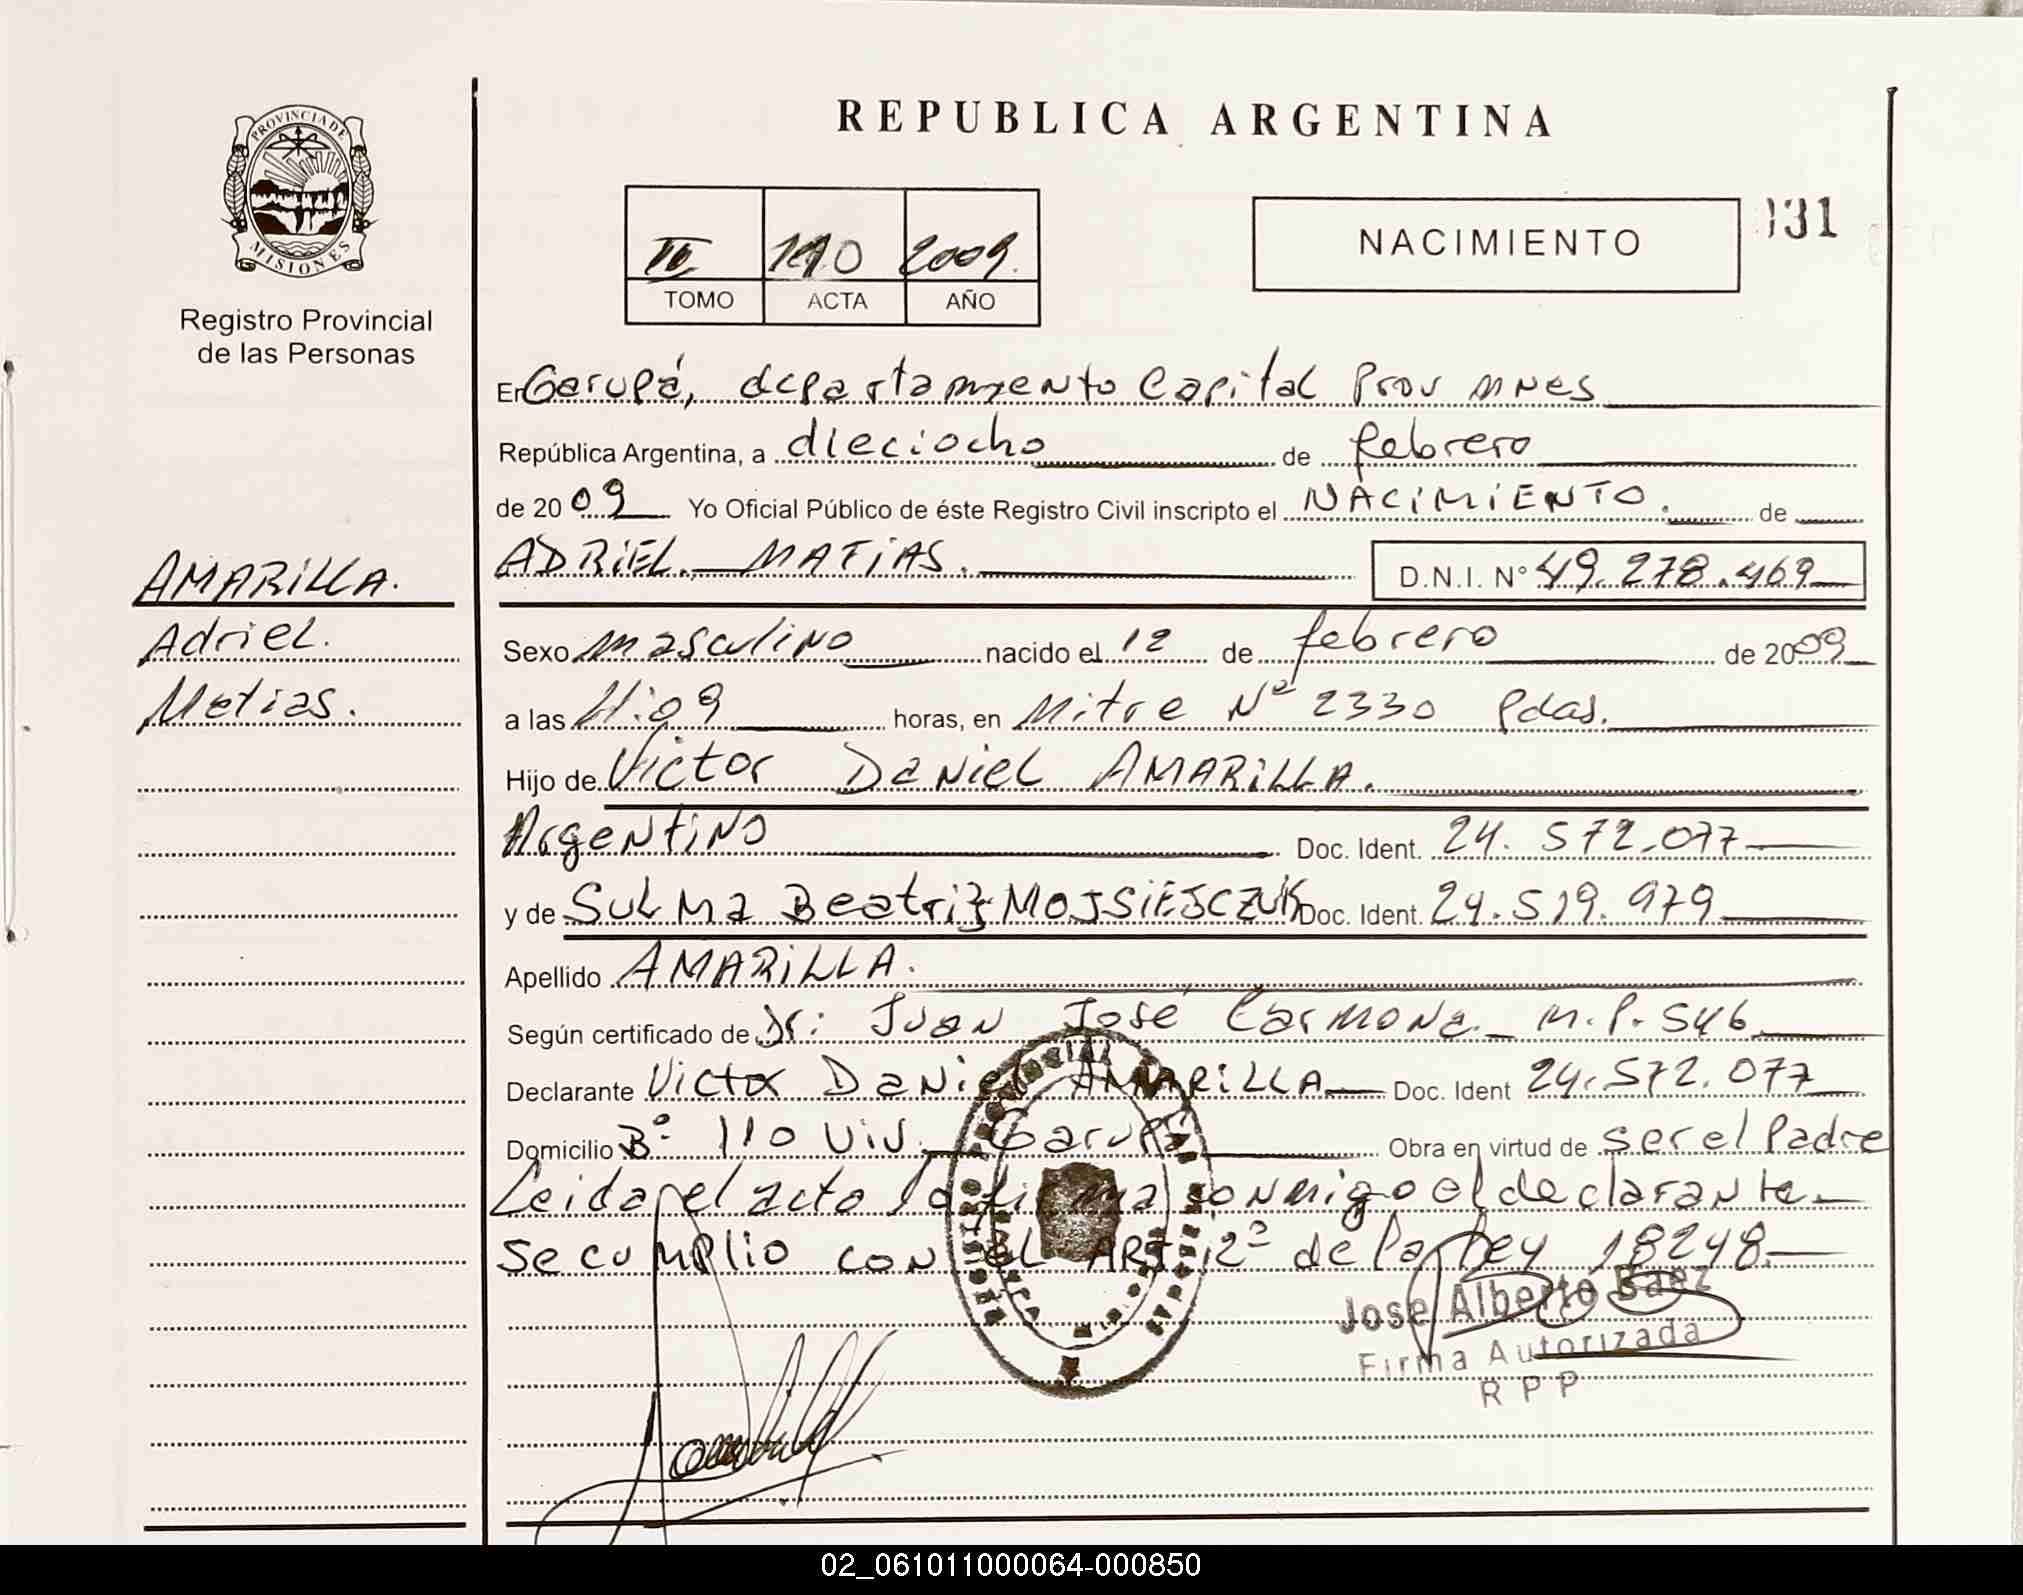 REPUBLICA ARGENTINA
PROVINCIA DE
MISIONES
Registro Provincial
de las Personas
II 2009.
TOMO ACTA AÑO
NACIMIENTO
131
En Garupá, departamento Capital Prov Mnes
República Argentina, a dieciocho de febrero
de 2009 Yo Oficial Público de éste Registro Civil inscripto el NACIMIENTO. de
ADRIEL MATIAS. D.N.I. Nº 49.278.469
AMARILLA.
Adriel.
Matias.
Sexo masculino nacido el 12 de febrero de 2009
a las 11:09 horas, en Mitre Nº 2330 Pdas.
Hijo de Victor Daniel AMARILLA.
Argentino Doc. Ident. 24.572.077
y de SULMA Beatriz MOJSIEJCZUK Doc. Ident. 24.519.979
Apellido AMARILLA.
Según certificado de Dr: Juan José Carmona M.P. 546
Declarante Victor Daniel AMARILLA Doc. Ident 24.572.077
Domicilio Bº 110 Viv. Garupá Obra en virtud de ser el Padre
Leida el acto la firma conmigo el declarante
Se cumplio con el ART 12º de la Ley 18248.
Jose Alberto Baez
Firma Autorizada
R P P
02_061011000064-000850